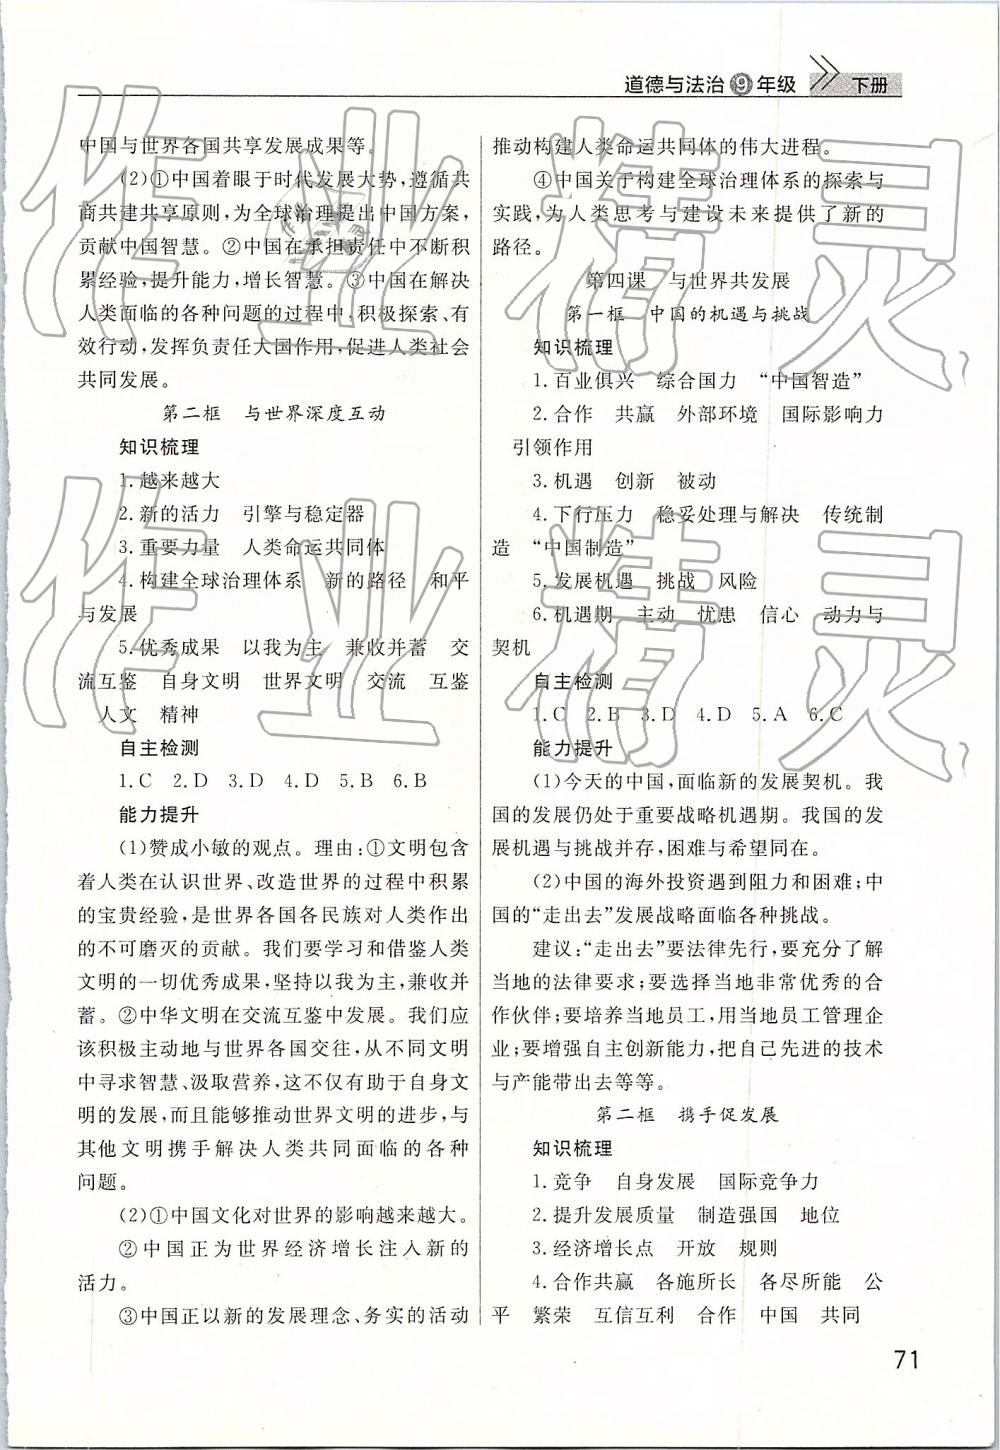 道德与法治⑨年级 下册
中国与世界各国共享发展成果等。
(2)①中国着眼于时代发展大势,遵循共
商共建共享原则,为全球治理提出中国方案,
贡献中国智慧。②中国在承担责任中不断积
累经验,提升能力,增长智慧。③中国在解决
人类面临的各种问题的过程中,积极探索、有
效行动,发挥负责任大国作用,促进人类社会
共同发展。
第二框 与世界深度互动
知识梳理
1.越来越大
2.新的活力 引擎与稳定器
3.重要力量 人类命运共同体
4.构建全球治理体系 新的路径 和平
与发展
5.优秀成果 以我为主 兼收并蓄 交
流互鉴 自身文明 世界文明 交流 互鉴
人文 精神
自主检测
1.C 2.D 3.D 4.D 5.B 6.B
能力提升
(1)赞成小敏的观点。理由:①文明包含
着人类在认识世界、改造世界的过程中积累
的宝贵经验,是世界各国各民族对人类作出
的不可磨灭的贡献。我们要学习和借鉴人类
文明的一切优秀成果,坚持以我为主,兼收并
蓄。②中华文明在交流互鉴中发展。我们应
该积极主动地与世界各国交往,从不同文明
中寻求智慧、汲取营养,这不仅有助于自身文
明的发展,而且能够推动世界文明的进步,与
其他文明携手解决人类共同面临的各种
问题。
(2)①中国文化对世界的影响越来越大。
②中国正为世界经济增长注入新的
活力。
③中国正以新的发展理念、务实的活动
推动构建人类命运共同体的伟大进程。
④中国关于构建全球治理体系的探索与
实践,为人类思考与建设未来提供了新的
路径。
第四课 与世界共发展
第一框 中国的机遇与挑战
知识梳理
1.百业俱兴 综合国力 “中国智造”
2.合作 共赢 外部环境 国际影响力
引领作用
3.机遇 创新 被动
4.下行压力 稳妥处理与解决 传统制
造 “中国制造”
5.发展机遇 挑战 风险
6.机遇期 主动 忧患 信心 动力与
契机
自主检测
1.C 2.B 3.D 4.D 5.A 6.C
能力提升
(1)今天的中国,面临新的发展契机。我
国的发展仍处于重要战略机遇期。我国的发
展机遇与挑战并存,困难与希望同在。
(2)中国的海外投资遇到阻力和困难;中
国的“走出去”发展战略面临各种挑战。
建议:“走出去”要法律先行,要充分了解
当地的法律要求;要选择当地非常优秀的合
作伙伴;要培养当地员工,用当地员工管理企
业;要增强自主创新能力,把自己先进的技术
与产能带出去等等。
第二框 携手促发展
知识梳理
1.竞争 自身发展 国际竞争力
2.提升发展质量 制造强国 地位
3.经济增长点 开放 规则
4.合作共赢 各施所长 各尽所能 公
平 繁荣 互信互利 合作 中国 共同
71
作业精灵
作业精灵